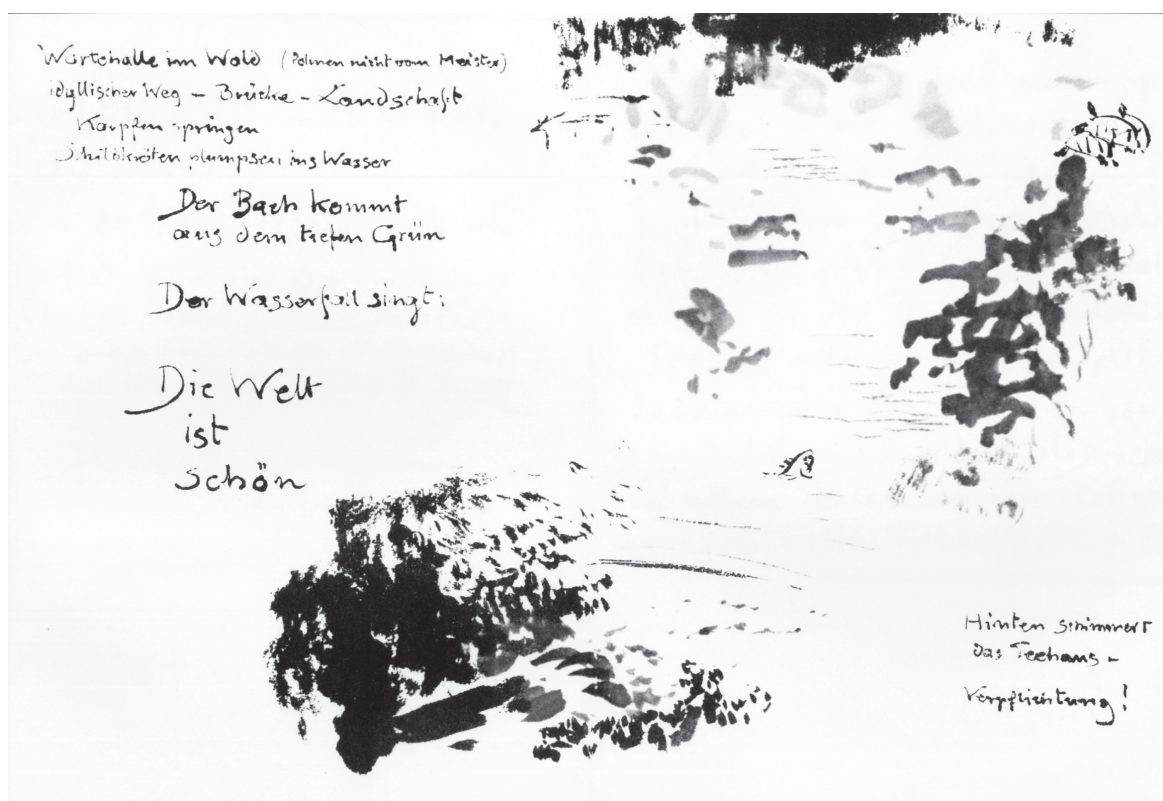 Wartehalle im Wald (Palmen nicht vom Meister)
idyllischer Weg – Brücke – Landschaft
Karpfen springen
Schildkröten plumpsen ins Wasser
Der Bach kommt
aus dem tiefen Grün
Der Wasserfall singt:
Die Welt
ist
schön
Hinten schimmert
das Teehaus –
Verpflichtung!